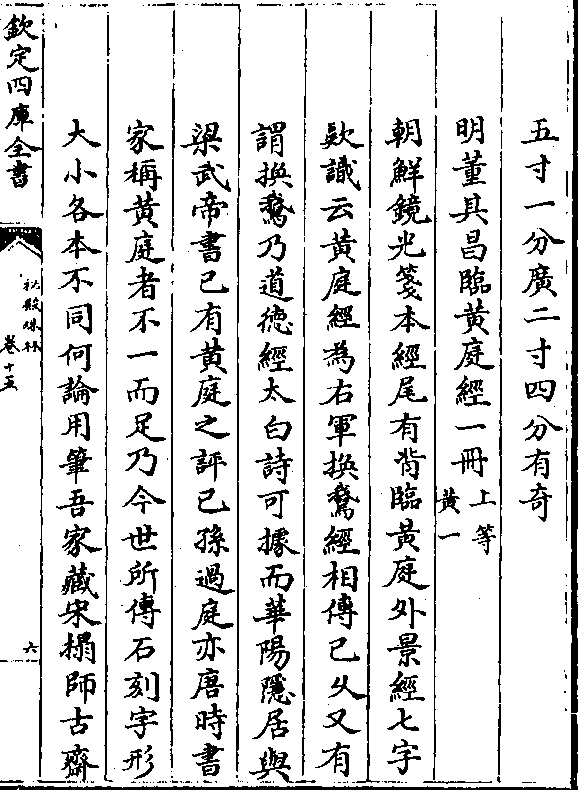 五寸一分廣二寸四分有奇
明董其昌臨黄庭經一冊上等黄一
朝鮮鏡光箋本經尾有背臨黄庭外景經七字
欵識云黄庭經為右軍換鵞經相傳已久又有
謂換鵞乃道德經太白詩可據而華陽隱居與
梁武帝書已有黄庭之評已孫過庭亦唐時書
家稱黄庭者不一而足乃今世所傳石刻字形
大小各本不同何論用筆吾家藏宋搨師古齋
欽定四庫全書
秘殿珠林
卷十五
六